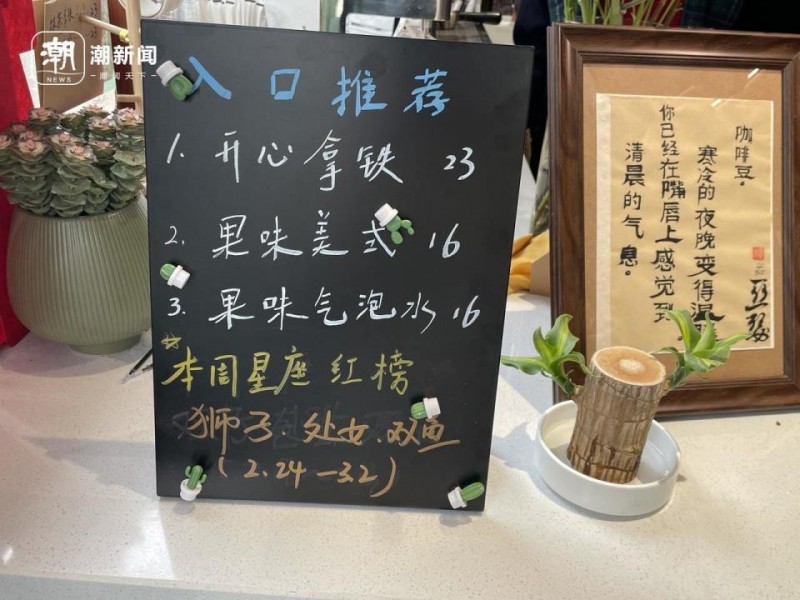 潮 潮新闻
NEWS 眼闻天下
入口推荐
1. 开心拿铁 23
2. 果味美式 16
3. 果味气泡水 16
☆本周星座红榜
狮子、处女、双鱼
(2.24-3.2)
咖啡豆。
寒冷的夜晚变得温
你已经在嘴唇上感觉到
清晨的气息。